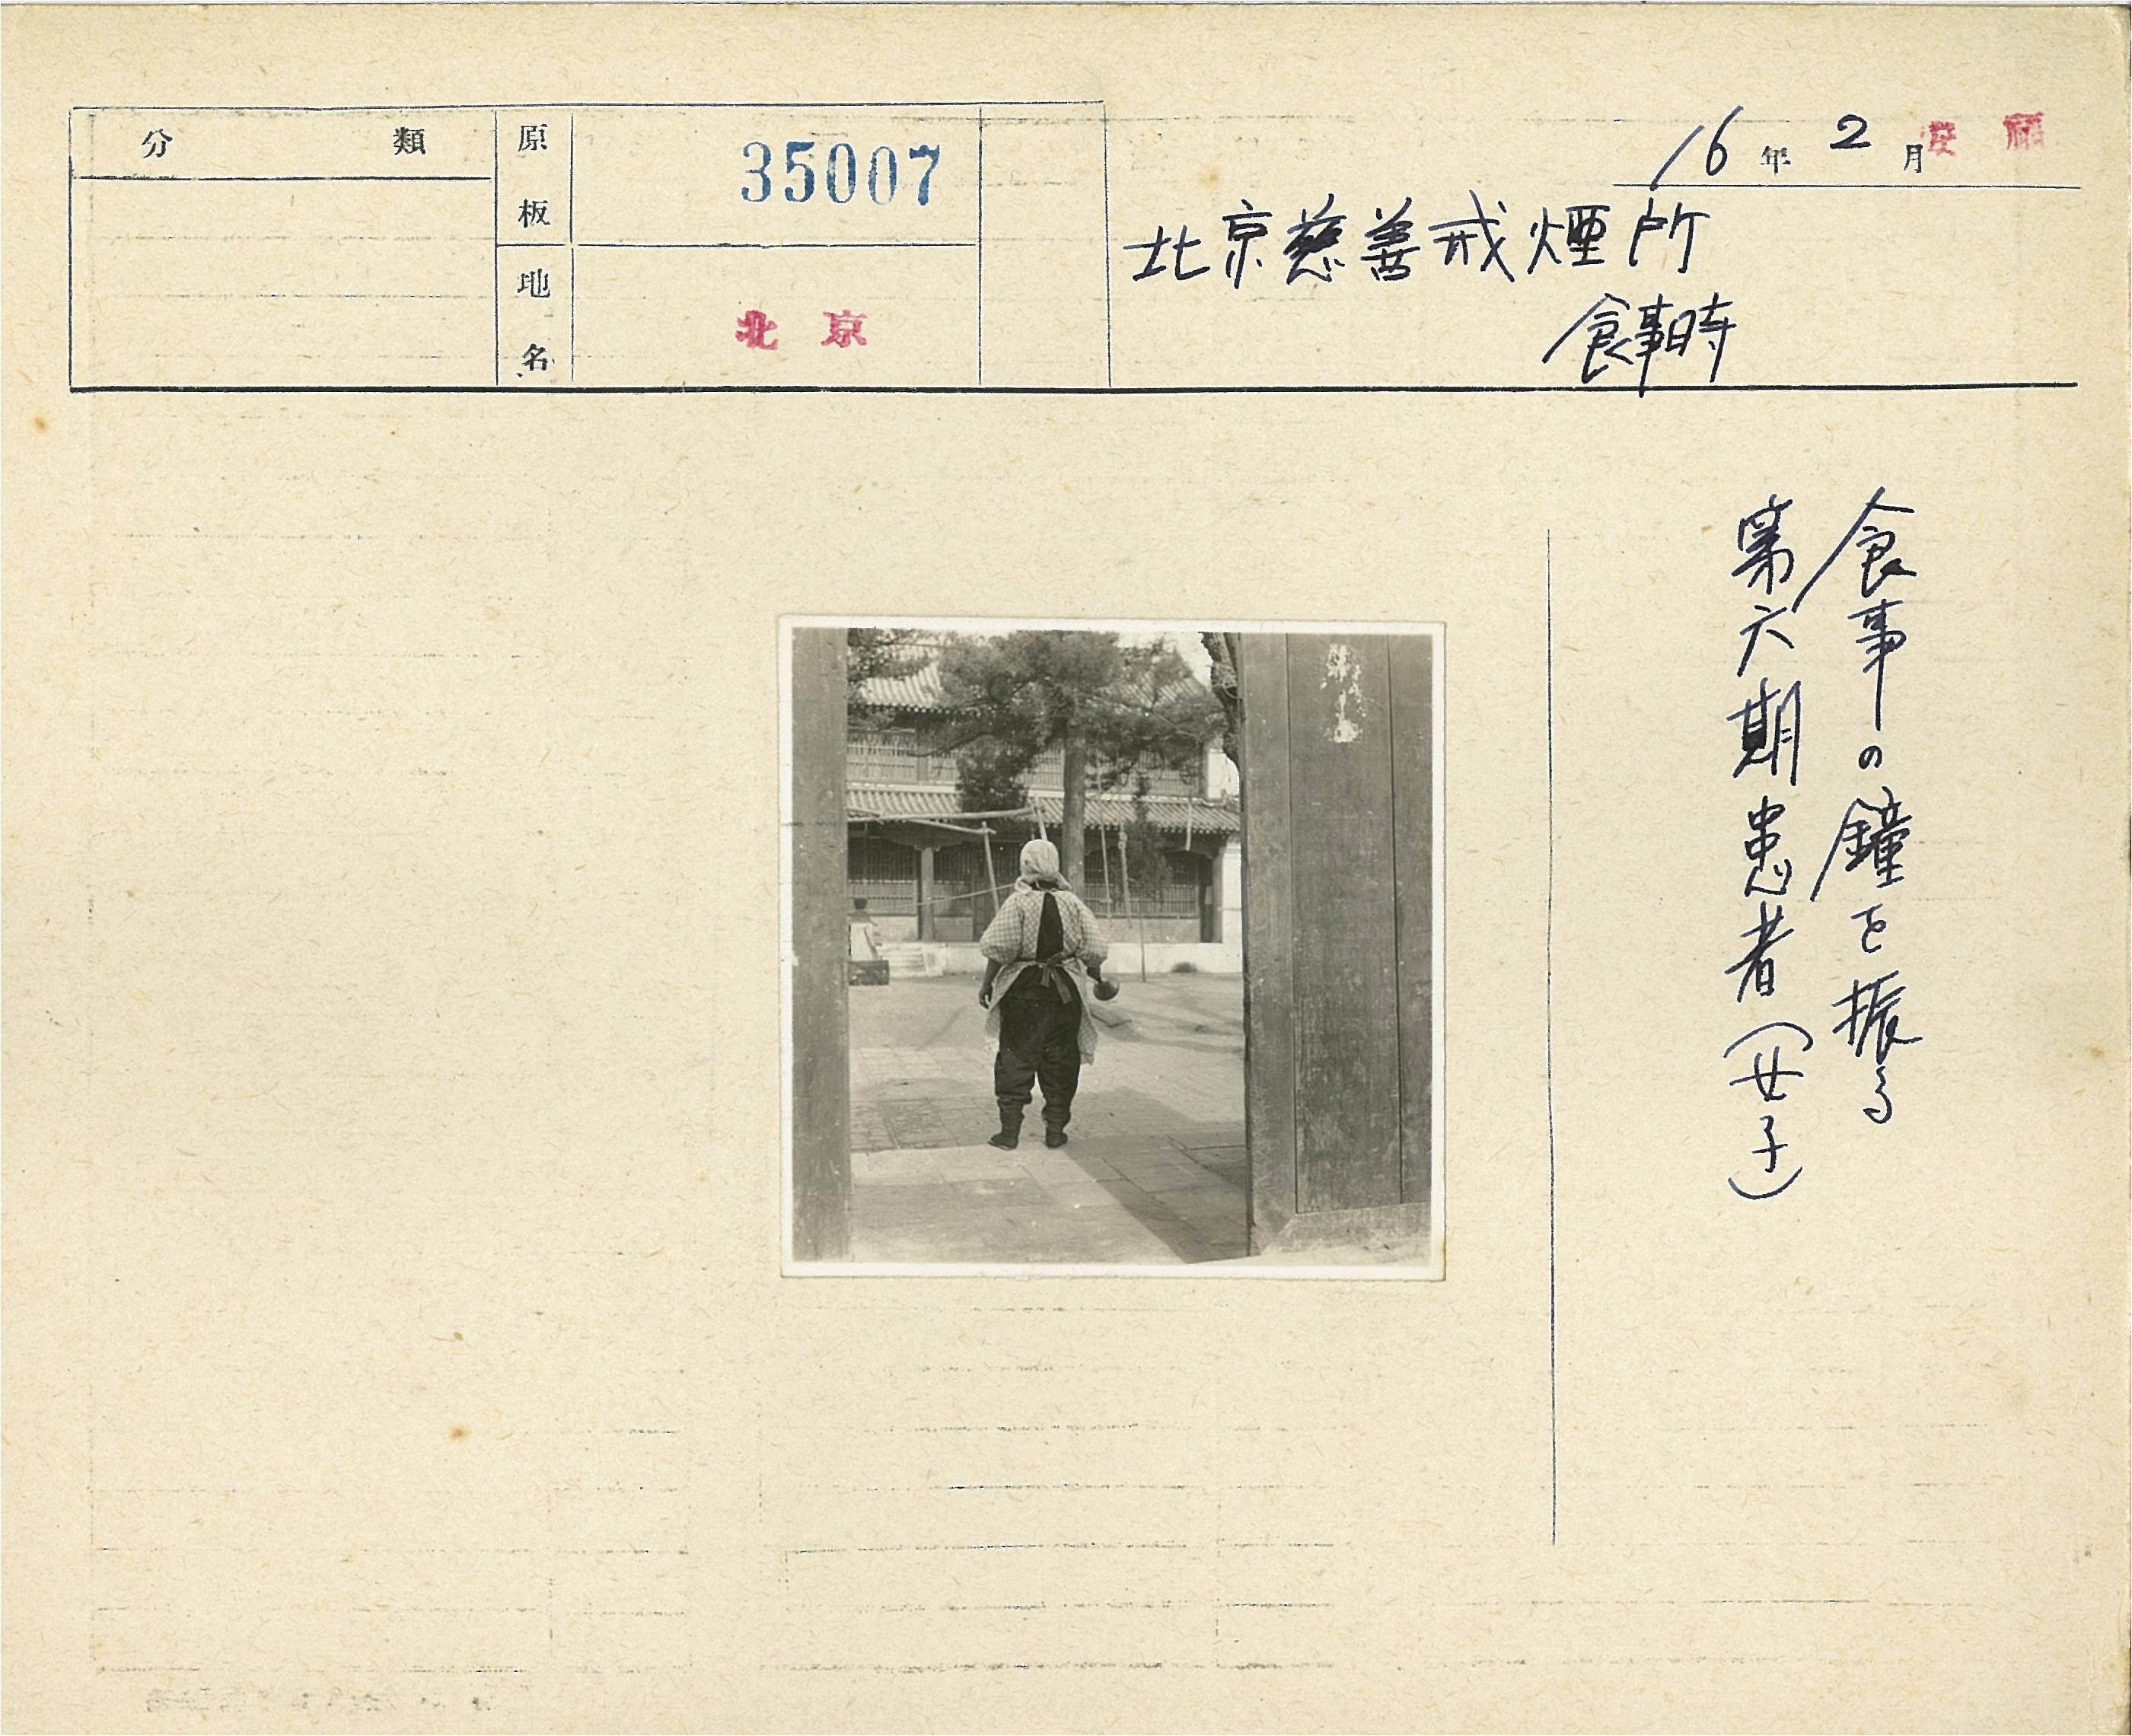 分類
原板
35007
地名
北京
16年2月
北京慈善戒煙所
食事時
食事の鐘を振る
第六期患者(女子)